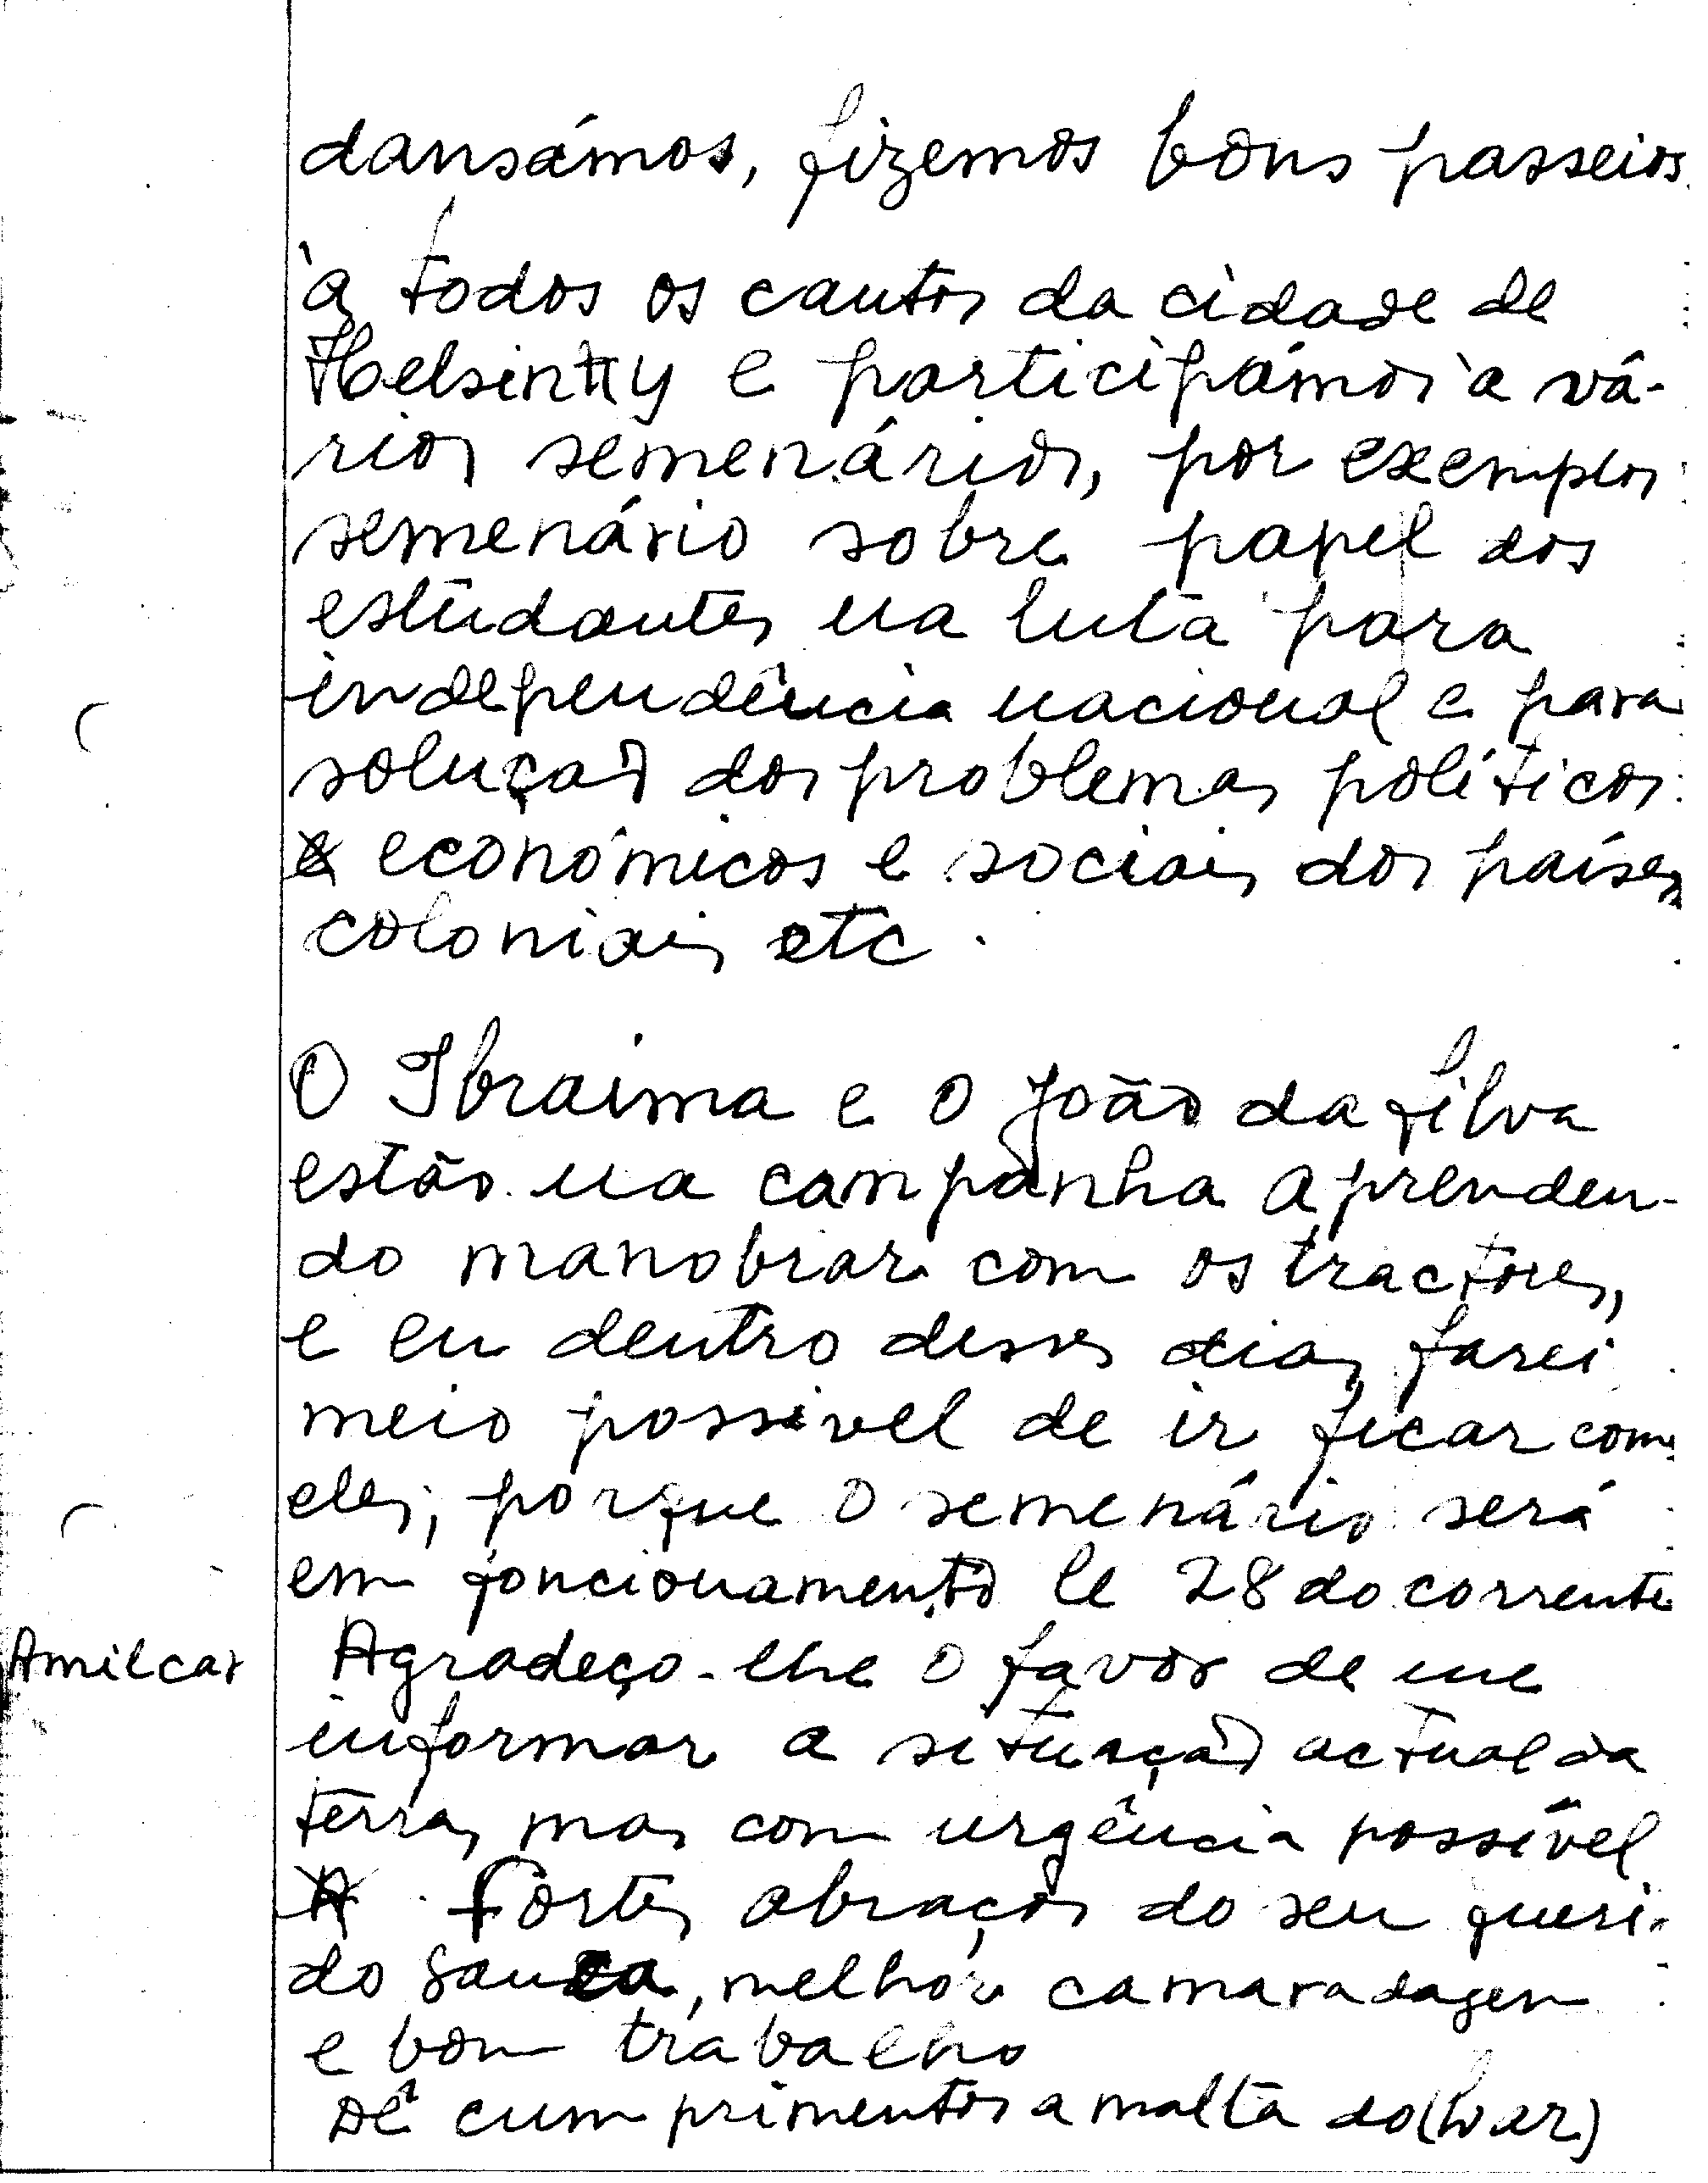 dansámos, fizemos bons passeios
à todos os cantos da cidade de
Helsinky e participámos à vá-
rios semenários, por exemplos
semenário sobre papel dos
estudantes na luta para
independência nacional e para
solução dos problemas políticos
económicos e sociais dos países
coloniais etc.
O Ibraima e o João da Silva
estão na campanha aprenden-
do manobrar com os tractores,
e eu dentro desses dias farei
meio possivel de ir ficar com
eles, porque o semenário será
em foncionamento le 28 do corrente
Amilcar Agradeço-lhe o favor de me
informar a situação actual da
terra, mas com urgência possível
Fortes abraços do seu queri-
do, melhor camaradagem
e bom trabalho
Dê cumprimentos a malta do (bar)